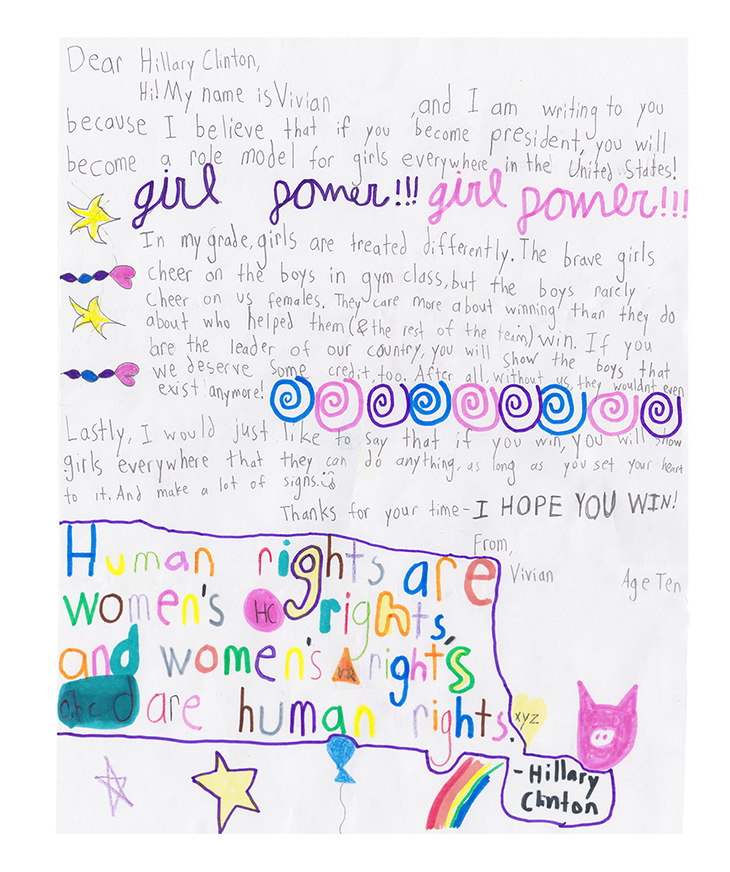 Dear Hillary Clinton,
Hi! My name is Vivian , and I am writing to you
because I believe that if you become president, you will
become a role model for girls everywhere in the United States!
girl power!!! girl power!!!
In my grade, girls are treated differently. The brave girls
cheer on the boys in gym class, but the boys rarely
cheer on us females. They care more about winning than they do
about who helped them (& the rest of the team) win. If you
are the leader of our country, you will show the boys that
we deserve some credit, too. After all, without us, they wouldnt even
exist anymore!
Lastly, I would just like to say that if you win, you will show
girls everywhere that they can do anything, as long as you set your heart
to it. And make a lot of signs.
Thanks for your time - I HOPE YOU WIN!
From,
Vivian Age Ten
Human rights are
women's HC rights,
and women's rights
abc d are human rights. xyz
- Hillary
Clinton